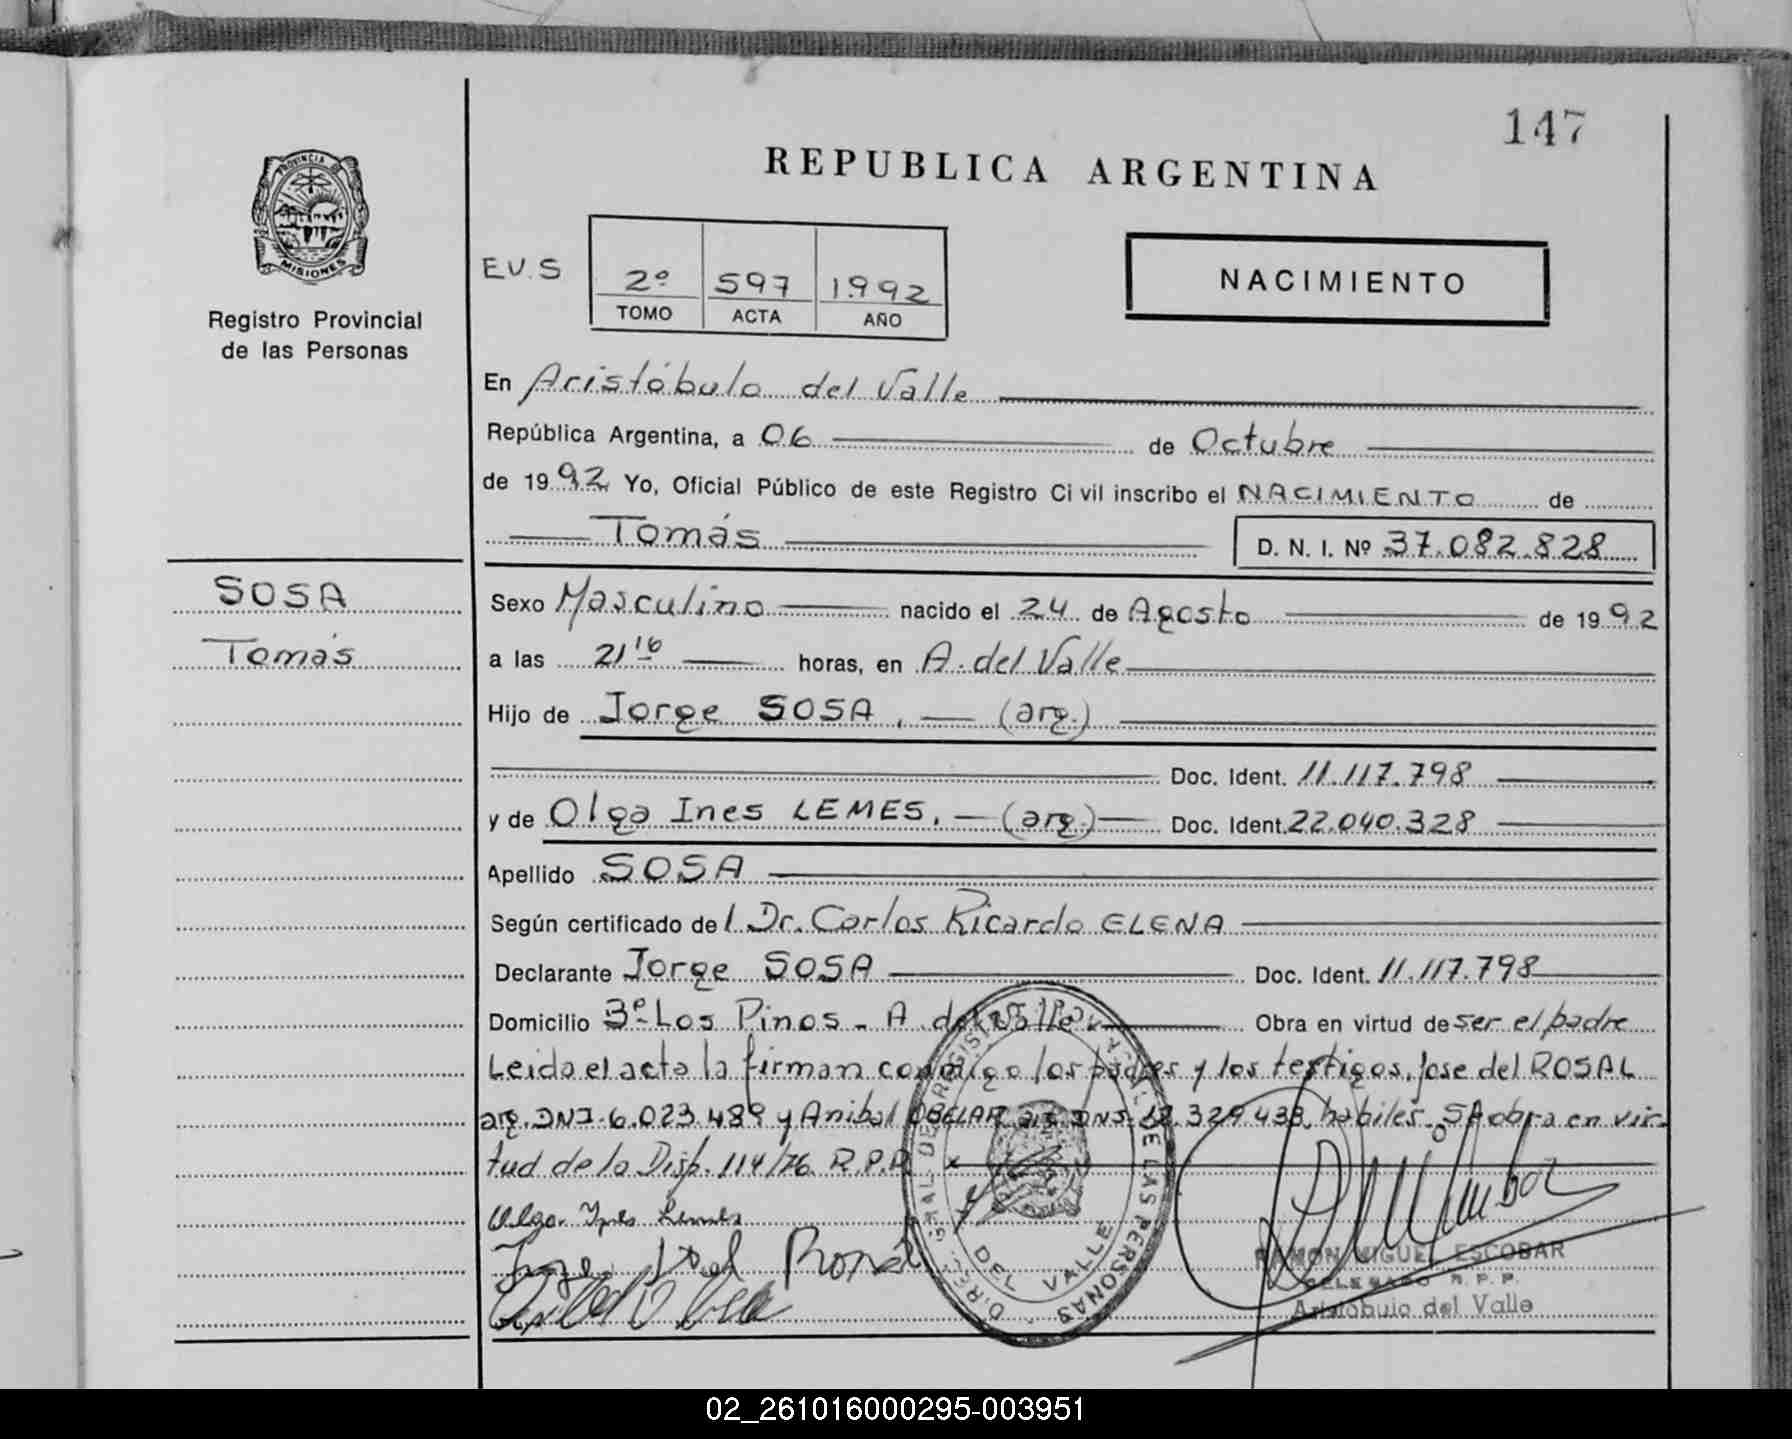 147
REPUBLICA ARGENTINA
PROVINCIA DE
MISIONES
Registro Provincial
de las Personas
E.V.S
2º 597 1992
TOMO ACTA AÑO
NACIMIENTO
En Aristóbulo del Valle
República Argentina, a 06 de Octubre
de 1992 Yo, Oficial Público de este Registro Civil inscribo el NACIMIENTO de
Tomás D. N. I. Nº 37.082.828
SOSA
Tomás
Sexo Masculino nacido el 24 de Agosto de 1992
a las 21 16 horas, en A. del Valle
Hijo de Jorge SOSA. (arg.)
Doc. Ident. 11.117.798
y de Olga Ines LEMES. (arg.) Doc. Ident. 22.040.328
Apellido SOSA
Según certificado del Dr. Carlos Ricardo ELENA
Declarante Jorge SOSA Doc. Ident. 11.117.798
Domicilio Bº Los Pinos - A. del Valle Obra en virtud de ser el padre
Leida el acta la firman conmigo los padres y los testigos, Jose del ROSAL
arg. DNI. 6.023.489 y Anibal OBELAR arg. DNI. 329.438, habiles. SA obra en vir-
tud de la Disp. 114/76 R.P.P
Olga Ines Lemes
RAMON MIGUEL ESCOBAR
DELEGADO R. P. P.
Aristobulo del Valle
DEL VALLE
DE LAS PERSONAS
02_261016000295-003951